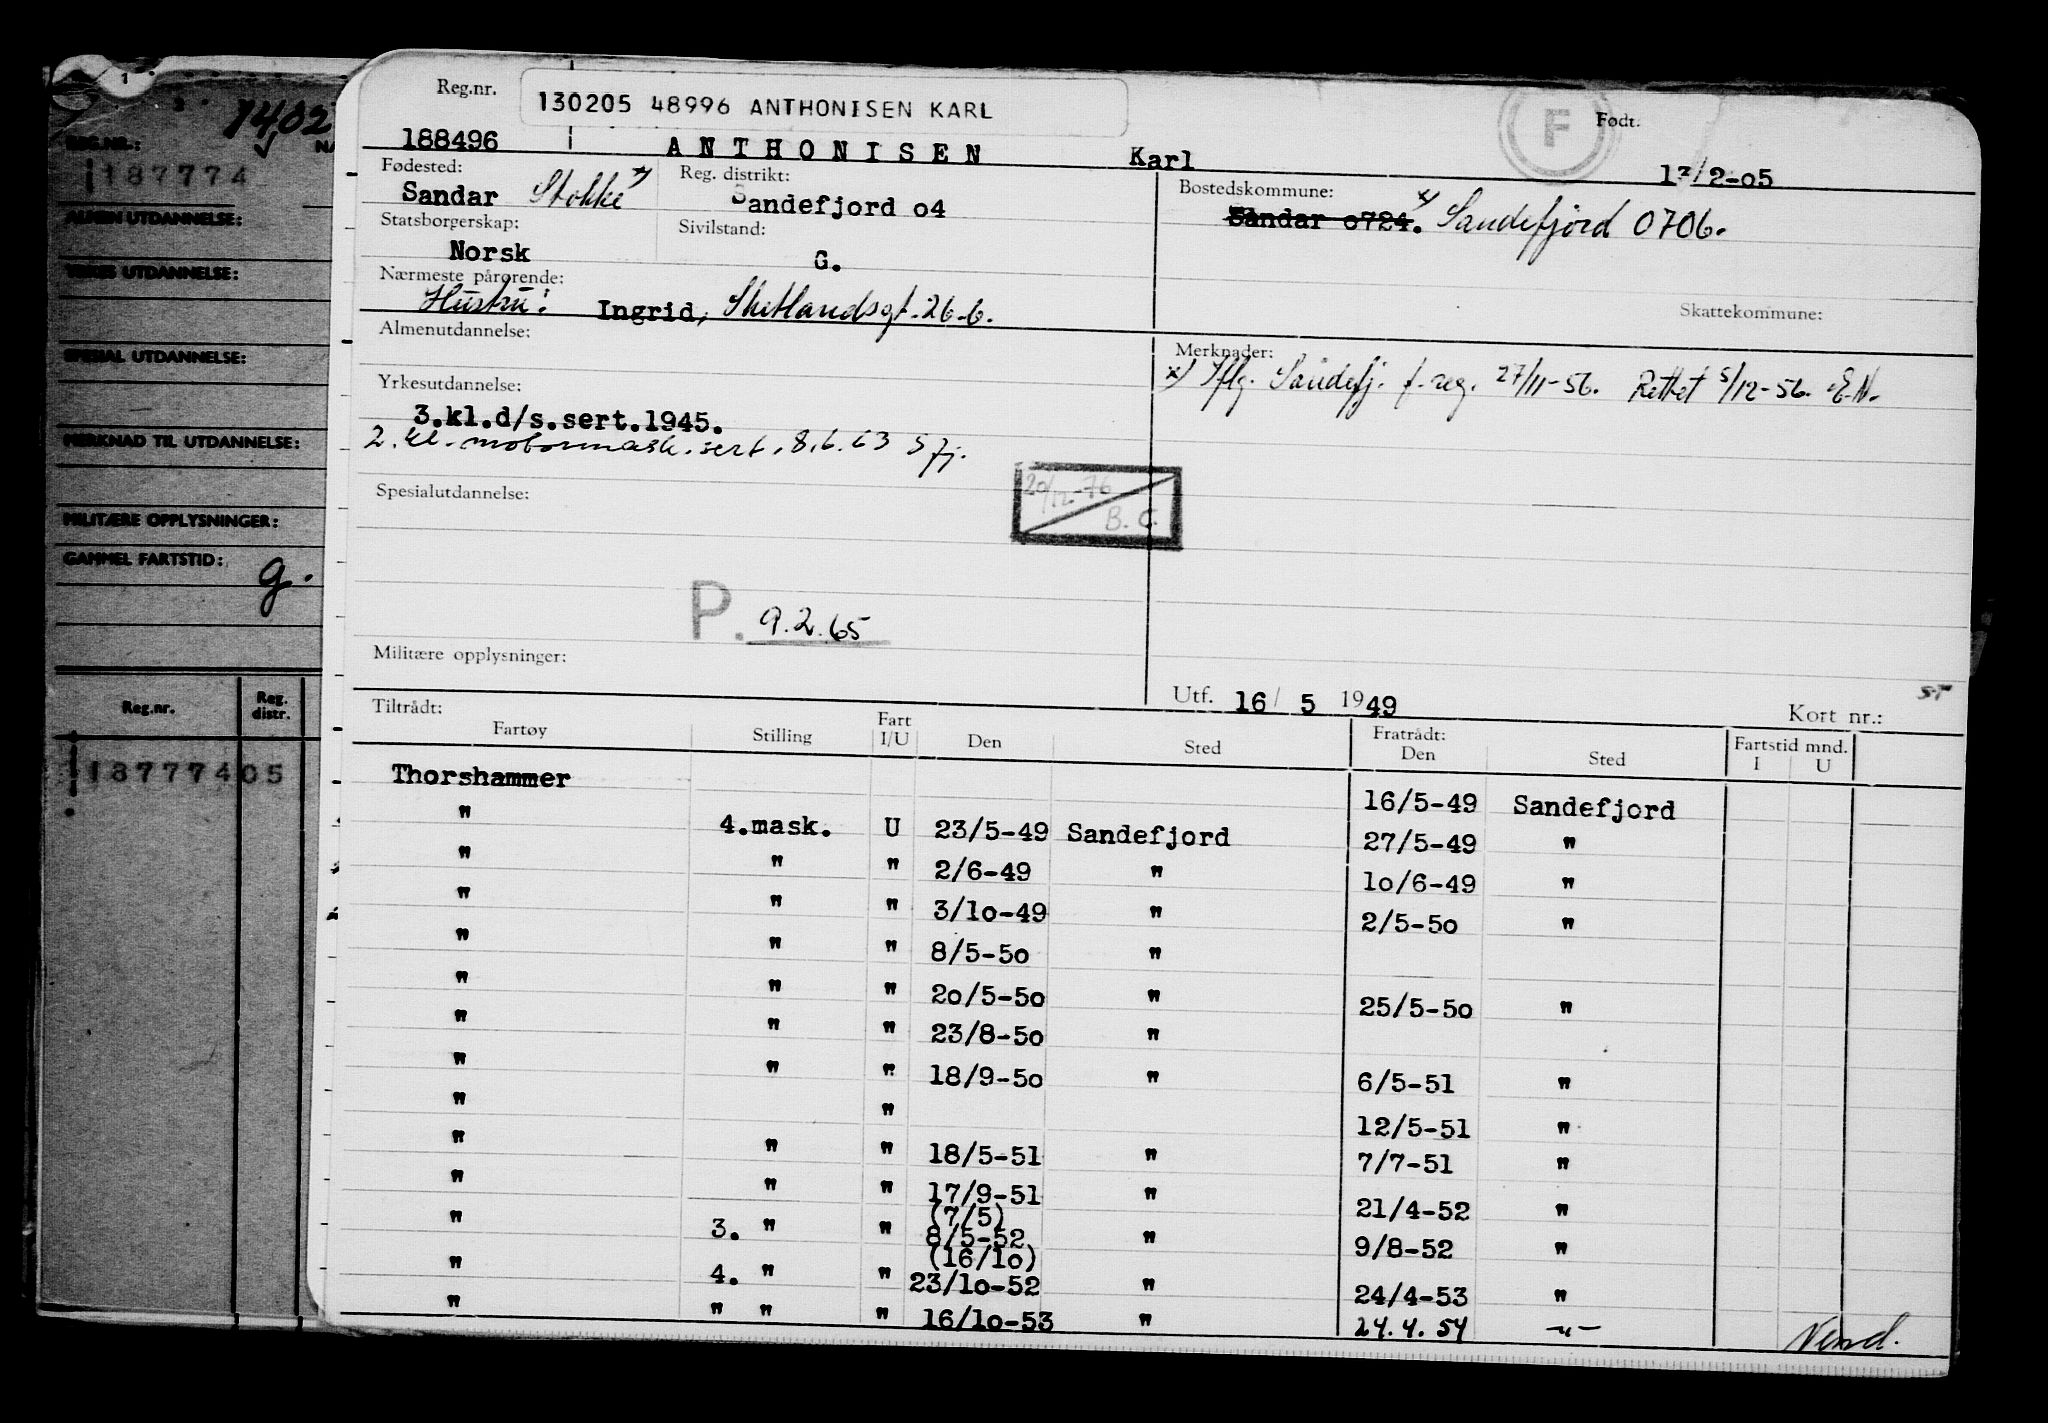 1
14021
REG.NR.:
NA
187774
ALMEN UTDANNELSE:
YRKES UTDANNELSE:
SPESIAL UTDANNELSE:
MERKNAD TIL UTDANNELSE:
MILITÆRE OPPLYSNINGER:
GAMMEL FARTSTID: g.
Reg.nr. Reg. distr.
187774 05
Reg.nr. 130205 48996 ANTHONISEN KARL F Født:
188496 ANTHONISEN Karl 13/2-05
Fødested: Reg. distrikt: Bostedskommune:
Sandar Stokke x) Sandefjord o4 Sandar o724. x) Sandefjord 0706.
Statsborgerskap: Sivilstand:
Norsk G.
Nærmeste pårørende:
Hustru: Ingrid, Shetlandsgt. 26-b. Skattekommune:
Almenutdannelse: Merknader:
x) Iflg. Sandefj. f.reg. 27/11-56. Rettet 5/12-56. E.N.
Yrkesutdannelse:
3.kl.d/s.sert.1945.
2. kl. motormask.sert. 8.6.63 Sfj.
Spesialutdannelse: 20/12-76
B.C.
P. 9.2.65
Militære opplysninger:
Utf. 16/ 5 1949 Kort nr.:
Tiltrådt: Fratrådt:
Fartøy Stilling Fart I/U Den Sted Den Sted Fartstid mnd. I U
Thorshammer 16/5-49 Sandefjord
" 4.mask. U 23/5-49 Sandefjord 27/5-49 "
" " " 2/6-49 " 1o/6-49 "
" " " 3/1o-49 " 2/5-5o "
" " " 8/5-5o "
" " " 2o/5-5o " 25/5-5o "
" " " 23/8-5o "
" " " 18/9-5o " 6/5-51 "
" " 12/5-51 "
" " " 18/5-51 " 7/7-51 "
" " " 17/9-51 " 21/4-52 "
(7/5)
" 3. " " 8/5-52 " 9/8-52 "
(16/1o)
" 4. " " 23/1o-52 " 24/4-53 "
" " " " 16/1o-53 " 24.4.54 -"-
Vend.